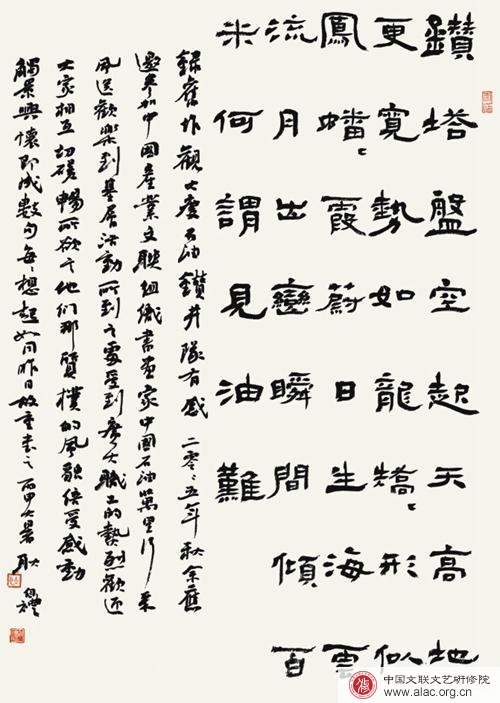 鑽塔盤空起天高地
更寬勢如龍矯〻形似
鳳蟠〻霞蔚日生海雲
流月出巒瞬間傾百
米何謂見油難
錄舊作觀大慶石油鑽井隊有感 二零〻五年秋余應
邀參加中國產業文聯組織書畫家中國石油萬里行采
風送歡樂到基層活動所到之處受到廣大職工的熱烈歡迎
大家相互切磋暢所欲言他們那質樸的風貌使受感動
觸景興懷即成數句每〻想起如同昨日故重書之丙申大暑耿
中国文联文艺研修院
www.alac.org.cn